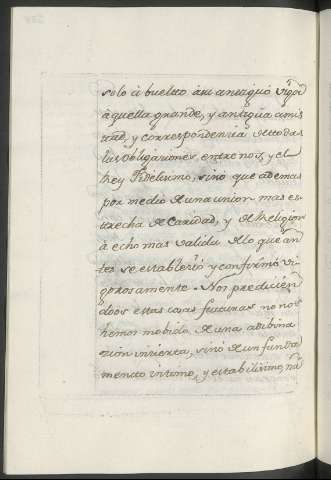 solo à buelto à su antiguo vigor
aquella grande, y antigua amis
tad, y correspondencia de todas
las obligaciones, entre nos, y el
Rey Fidelisimo, sinó que ademas
por medio de una union mas es
trecha de Caridad, y de Religion
à echo mas valida de lo que an
tes se estableció y confirmó vi
gorosamente. Nos predicien
doos estas cosas futuras no nos
hemos mobido de una adibina
cion incierta, sinó de un funda
mento intimo, y estabilisimo, na